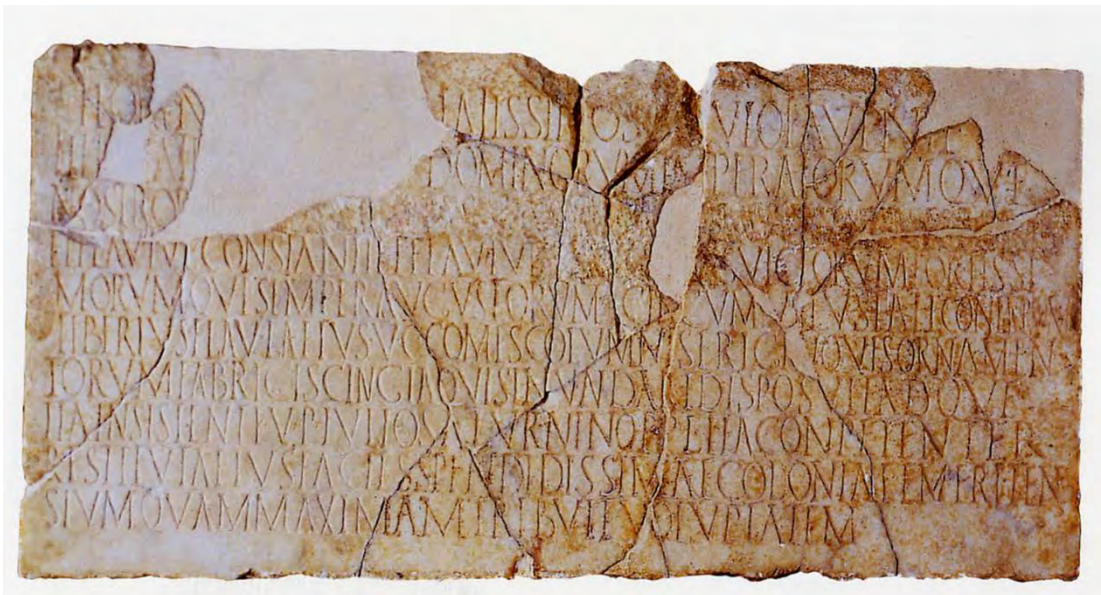 FAVEN
DOMINORVM IMPERATORVMQVE
NOSTROR
ET FLAVI CONSTANTI ET FLAVI VICTORVM FORTISSI
MORVMQVE SEMPER AVGVSTORVM CIRCVM VETVSTATE CONLAPSVM
TIBERIVS FLAV LAETVS V C COMES COLVMNIS ERIGI NOVIS ORNAMEN
TORVM FABRICIS CINGI AQVIS INVNDARI DISPOSVIT ADQVE
ITA INSISTENTE V P IVLIO SATVRNINO P P L ITA CONPETENTER
RESTITVTA EIVS FACIES SPLENDIDISSIMAE COLONIAE EMERITEN
SIVM QVAM MAXIMAM TRIBVIT VOLVPTATEM